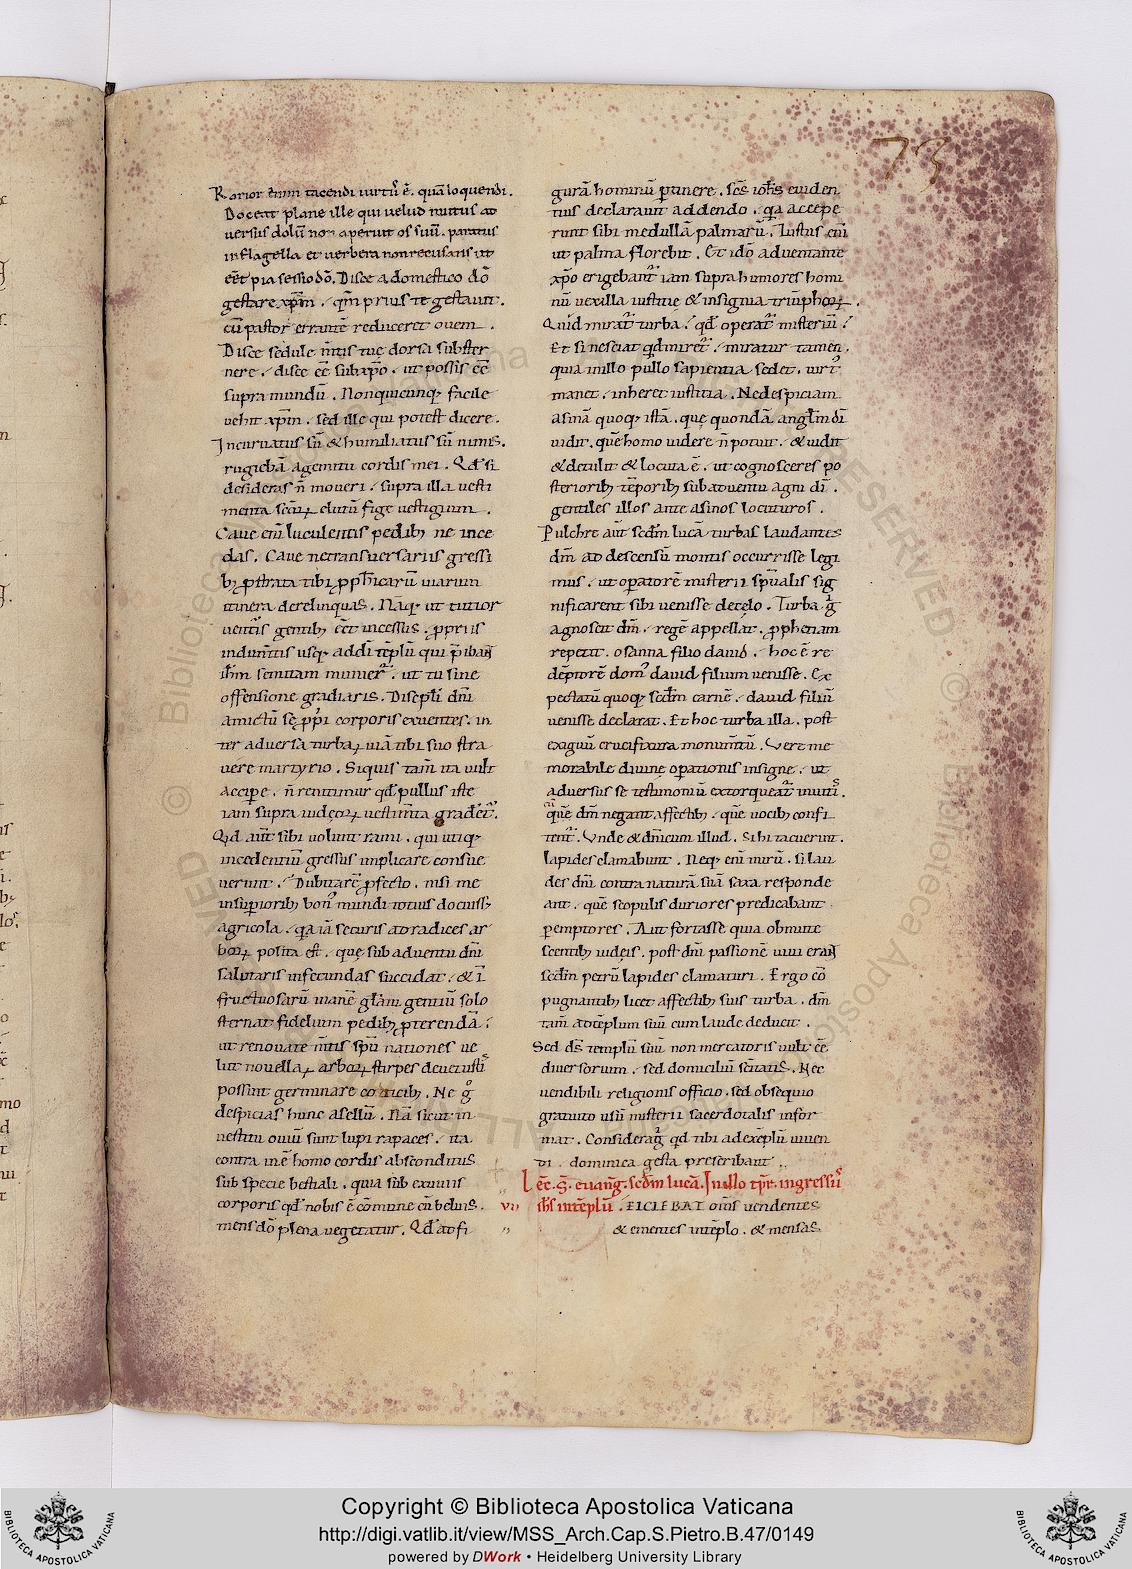 73
Rarior enim tacendi uirtꝰ ē. quā loquendi.
Doceat plane ille qui uelud mutus ad
uersus dolū non aperuit os suū. paratus
in flagella et uerbera non recusans ut
eēt pia sessio dō. Disce a domestico dō
gestare xp̄m. qm̄ prius te gestauit.
cū pastor errantē reduceret ouem.
Disce sedule m̄tis tuę dorsa subster
nere. disce eē sub xp̄o. ut possis eē
supra mundū. Non quicunq; facile
uehit xp̄m. sed ille qui potest dicere.
Incuruatus sū & humiliatus sū nimis.
rugiebā a gemitu cordis mei. Qd̄ si
desideras n̄ moueri. supra illa uesti
menta sc̄oꝝ elutū fige uestigium.
Caue eni luculentis pedibꝫ ne ince
das. Caue ne transuersariis gressi
bꝫ ꝓstrata tibi ꝓph̄icarū uiarum
itinera derelinquas. Nāq; ut tutior
uentꝰis gentibꝫ eēt incessus. ꝓpriis
indum̄tis usq; ad dn̄i tēplū qui p̄iban̄t
ihm̄ semitam munierꝰt. ut tu sine
offensione gradiaris. Discipl̄i dn̄i
amictū sę ꝓpi corporis exuentes. in
ter aduersa turbaꝝ uiā tibi suo stra
uere martyrio. Siquis tam̄ ita uult
accipe. n̄ renitimur qd̄ pullus iste
iam supra iudęoꝝ uestim̄ta gradet̄.
Qd aut̄ sibi uolunt rami. qui utiq;
incedentiū gressus implicare consue
uerunt. Dubitarē ꝓfecto. nisi me
insupioribꝫ bonꝰ mundi totius docuiss;
agricola. qa iā securis ad radices ar
boꝝ posita est. quę sub aduentu dn̄i
salutaris infecundas succidat. & ī
fructuosarū inanē glām gentiū solo
sternat fidelium pedibꝫ ꝓterendā.
ut renouate m̄tis spū nationes ue
lut nouellaꝝ arboꝝ stirpes de uetusti
possint germinare codicibꝫ. Ne gͦ
despicias hunc asellū. Nā sicut in
uestitu ouiū sunt lupi rapaces. ita
contra in ē homo cordis absconditus
sub specie bestiali. quia sub exuuiis
corporis qd̄ nobis ē cōmune cū beluis.
mens dō plena uegetatur. Qd̄ ad fi
gurā hominū ptinere. sc̄s ioh̄s euiden
tius declarauit addendo. qa accepe
runt sibi medullā palmarū. Iustus eni
ut palma florebit. Et ido adueniente
xp̄o erigebantꝰ iam supra humeros homi
nū uexilla iustitie & insignia triūphoꝝ.
Quid miratꝰ turba. qd̄ operatꝰ misteriū.
Et si nesciat qd miretꝰ. miratur tamen.
quia in illo pullo sapientia sedet. uirtꝰ
manet. inheret iustitia. Ne despiciam
asinā quoq; istā. quę quondā angl̄m dī
uidit. quē homo uidere n̄ potuit. & uidit
& detulit & locuta ē. ut cognosceres po
sterioribꝫ tēporibꝫ sub aduentu agni dī.
gentiles illos ante asinos locuturos.
Pulchre aut̄ sedm̄ lucā turbas laudantes
dm̄ ad descensū montis occurrisse legi
mus. ut opatorē misterii spūalis sig
nificarent sibi uenisse de cęlo. Turba gͦ
agnoscit dm̄. regē appellat. ꝓphetiam
repetit. osanna filio dauid. hoc ē re
dēptorē domꝰ dauid filium uenisse. Ex
pectatū quoq; sedm̄ carnē. dauid filiū
uenisse declarat. Et hoc turba illa. post
exiguū crucifixura monum̄tū. Vere me
morabile diuine opationis insigne. ut
aduersus se testimoniū extorqueatꝰ inuitis.
quē dm̄ negant affectibꝫ. quē uocibꝫ confi
tentꝰ. Vnde & dn̄icum illud. Si hi tacuerint.
lapides clamabunt. Neq; eni mirū. si lau
des dn̄i contra naturā suā saxa responde
ant. quē scopulis duriores predicabant
pemptores. Aut fortasse quia obmute
scentibꝫ iudeis. post dn̄i passionē uiui eran̄t
sedm̄ petrū lapides clamaturi. Ergo cō
pugnantibꝫ licet affectibꝫ suis turba. dm̄
tam̄ ad tēplum suū cum laude deducit.
Sed ds̄ templū suū non mercatoris uult eē
diuersorum. sed domiciliū sc̄itatis. Nec
uendibili religionis officio. sed obsequio
gratuito usū misterii sacerdotalis infor
mat. Consideragͦ qd tibi ad exēplū uiuen
di. dominica gesta prescribant.
Lec̄. S. euang. sedm̄ lucā. In illo tp̄r. ingressus
ih̄s in tēplū. EICIEBAT om̄s uendentes
& ementes in tēplo. & mensas
Copyright © Biblioteca Apostolica Vaticana
http://digi.vatlib.it/view/MSS_Arch.Cap.S.Pietro.B.47/0149
powered by DWork • Heidelberg University Library